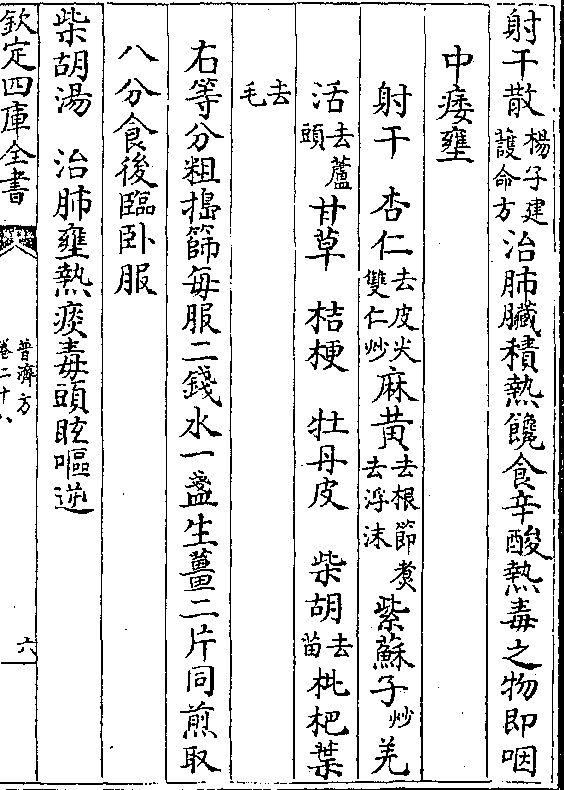 射干散楊子建護命方治肺臟積熱饞食辛酸熱毒之物即咽
中痿壅
射干 杏仁去皮尖雙仁炒麻黄去根節煑去浮沫紫蘇子炒羌
活去蘆頭甘草 桔梗 牡丹皮 柴胡去苗枇杷葉
去毛
右等分粗搗篩每服二錢水一盞生薑二片同煎取
八分食後臨卧服
柴胡湯 治肺壅熱痰毒頭眩嘔逆
欽定四庫全書
普濟方
卷二十八
六